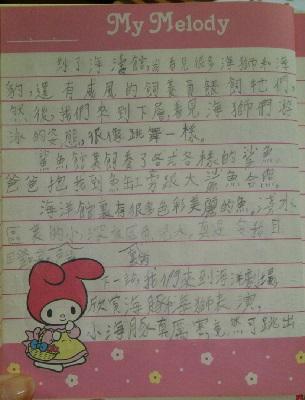 My Melody
到了海濤館,看見很多海獅和海
豹,還有威風的飼養員餵飼牠們。
然後,我們來到下層看見海獅們游
泳的姿態,很像跳舞一樣。
鯊魚館裏飼養了各式各樣的鯊魚。
爸爸抱我到魚缸旁跟大鯊魚合照。
海洋館裏有很多色彩美麗的魚,淺水
區
下一站我們來到海洋劇場
欣賞海豚和海獅表演。
小海豚真厲害竟然可跳出